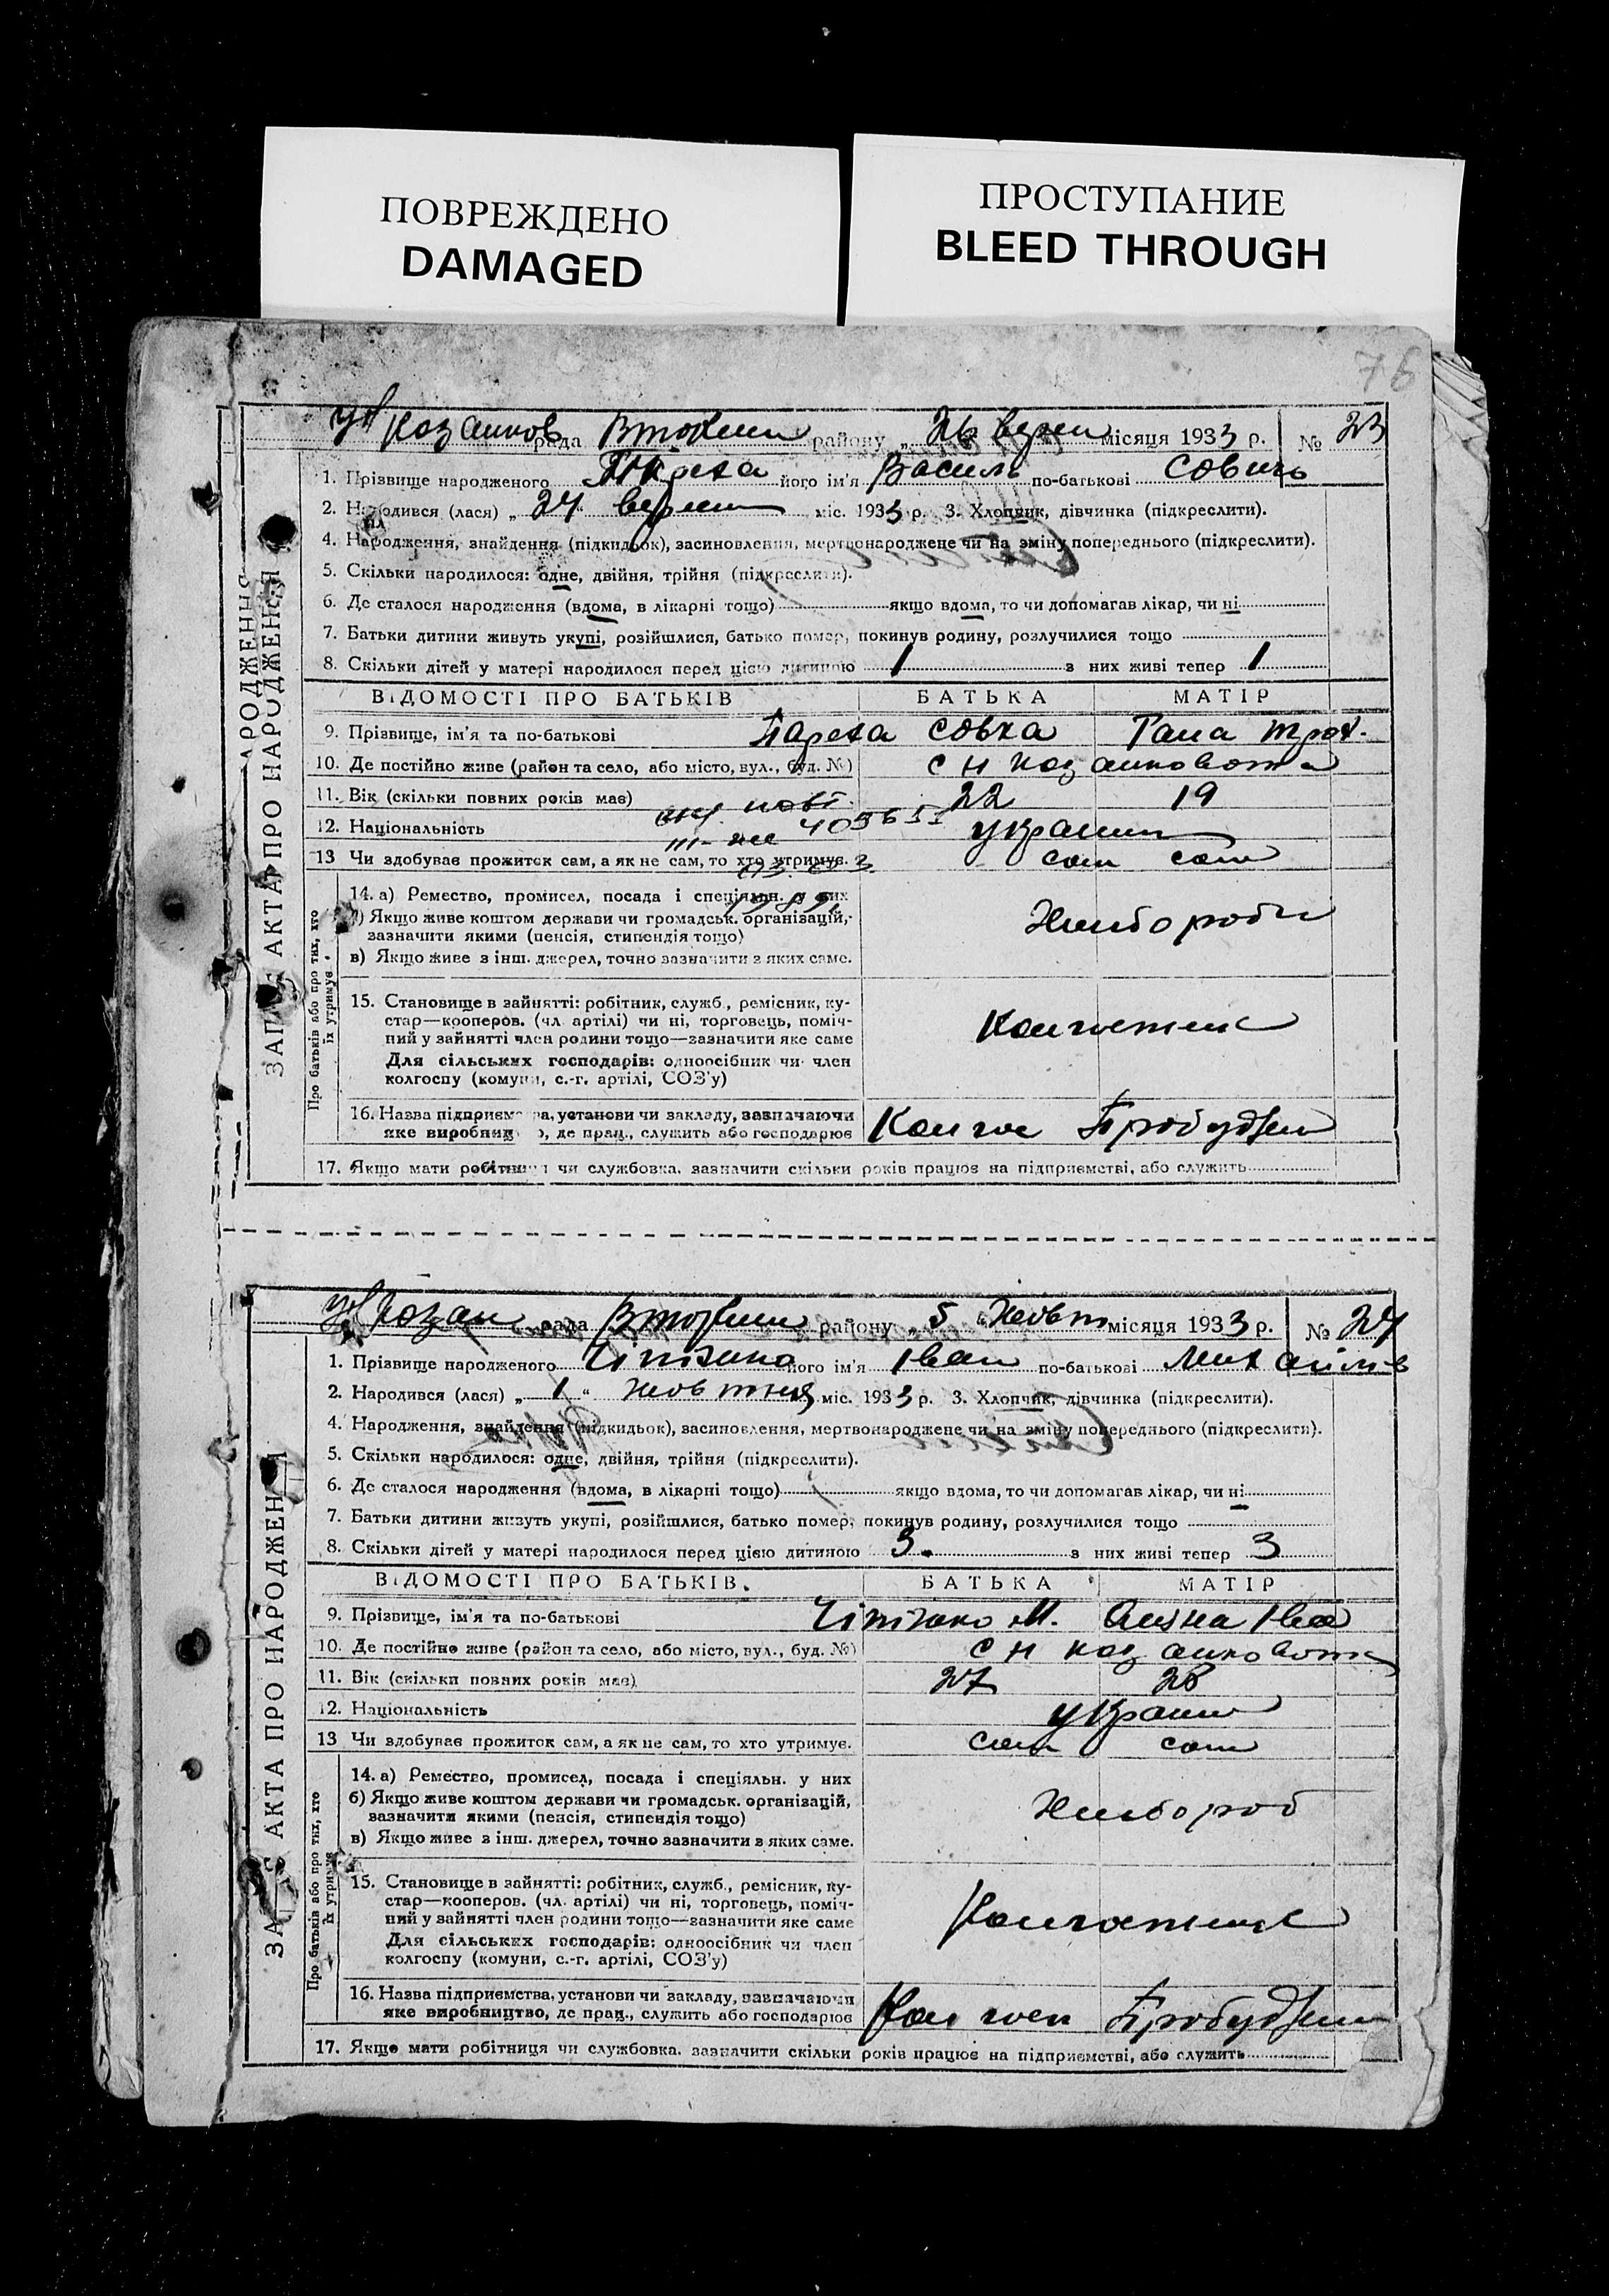 ПОВРЕЖДЕНО
DAMAGED
ПРОСТУПАНИЕ
BLEED THROUGH
76
ЗАПИС АКТА ПРО НАРОДЖЕННЯ
рада району „ 26 верес місяця 1933 р. № 23
1. Прізвище народженого його ім'я Василь по-батькові Сович
2. Народився (лася) „ 24 " верес міс. 1933 р. 3. Хлопчик, дівчинка (підкреслити).
4. Народження, знайдення (підкидьок), засиновлення, мертвонароджене чи на зміну попереднього (підкреслити).
5. Скільки народилося: одне, двійня, трійня (підкреслити).
6. Де сталося народження (вдома, в лікарні тощо) якщо вдома, то чи допомагав лікар, чи ні
7. Батьки дитини живуть укупі, розійшлися, батько помер, покинув родину, розлучилися тощо
8. Скільки дітей у матері народилося перед цією дитиною 1 з них живі тепер 1
ВІДОМОСТІ ПРО БАТЬКІВ БАТЬКА МАТІР
9. Прізвище, ім'я та по-батькові Совка Гана
10. Де постійно живе (район та село, або місто, вул., буд. №) с н
11. Вік (скільки повних років має) 22 19
12. Національність україн
13 Чи здобуває прожиток сам, а як не сам, то хто утримує. сам сам
Про батьків або про тих, хто їх утримує
14. а) Ремество, промисел, посада і спеціяльн. у них
б) Якщо живе коштом держави чи громадськ. організацій,
зазначити якими (пенсія, стипендія тощо)
в) Якщо живе з інш. джерел, точно зазначити з яких саме.
Хлібороби
15. Становище в зайнятті: робітник, служб., ремісник, ку-
стар—кооперов. (чл. артілі) чи ні, торговець, поміч-
ний у зайнятті член родини тощо—зазначити яке саме
Для сільських господарів: одноосібник чи член
колгоспу (комуни, с.-г. артілі, СОЗ'у)
Колгоспник
16. Назва підприємства, установи чи закладу, зазначаючи
яке виробництво, де прац., служить або господарює
17. Якщо мати робітниця чи службовка. зазначити скільки років працює на підприємстві, або служить
ЗАПИС АКТА ПРО НАРОДЖЕННЯ
рада району „ 5 " Жовт місяця 1933 р. № 24
1. Прізвище народженого його ім'я Іван по-батькові Михайлів
2. Народився (лася) „ 1 " жовтня міс. 1933 р. 3. Хлопчик, дівчинка (підкреслити).
4. Народження, знайдення (підкидьок), засиновлення, мертвонароджене чи на зміну попереднього (підкреслити).
5. Скільки народилося: одне, двійня, трійня (підкреслити).
6. Де сталося народження (вдома, в лікарні тощо) якщо вдома, то чи допомагав лікар, чи ні
7. Батьки дитини живуть укупі, розійшлися, батько помер, покинув родину, розлучилися тощо
8. Скільки дітей у матері народилося перед цією дитиною 3. з них живі тепер 3
ВІДОМОСТІ ПРО БАТЬКІВ. БАТЬКА МАТІР
9. Прізвище, ім'я та по-батькові М. Іва
10. Де постійно живе (район та село, або місто, вул., буд. №) с н
11. Вік (скільки повних років має) 27 28
12. Національність україн
13 Чи здобуває прожиток сам, а як не сам, то хто утримує. сам сам
Про батьків або про тих, хто їх утримує
14. а) Ремество, промисел, посада і спеціяльн. у них
б) Якщо живе коштом держави чи громадськ. організацій,
зазначити якими (пенсія, стипендія тощо)
в) Якщо живе з інш. джерел, точно зазначити з яких саме.
Хлібороб
15. Становище в зайнятті: робітник, служб., ремісник, ку-
стар—кооперов. (чл. артілі) чи ні, торговець, поміч-
ний у зайнятті член родини тощо—зазначити яке саме
Для сільських господарів: одноосібник чи член
колгоспу (комуни, с.-г. артілі, СОЗ'у)
Колгоспник
16. Назва підприємства, установи чи закладу, зазначаючи
яке виробництво, де прац., служить або господарює
17. Якщо мати робітниця чи службовка. зазначити скільки років працює на підприємстві, або служить